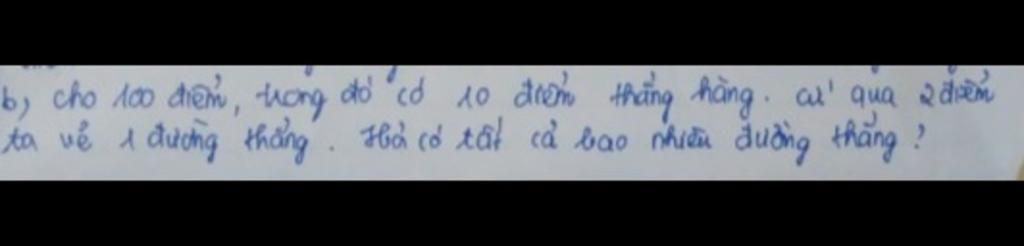 b) cho 100 điểm, trong đó có 10 điểm thẳng hàng. cứ qua 2 điểm
ta vẽ 1 đường thẳng. Hỏi có tất cả bao nhiêu đường thẳng?